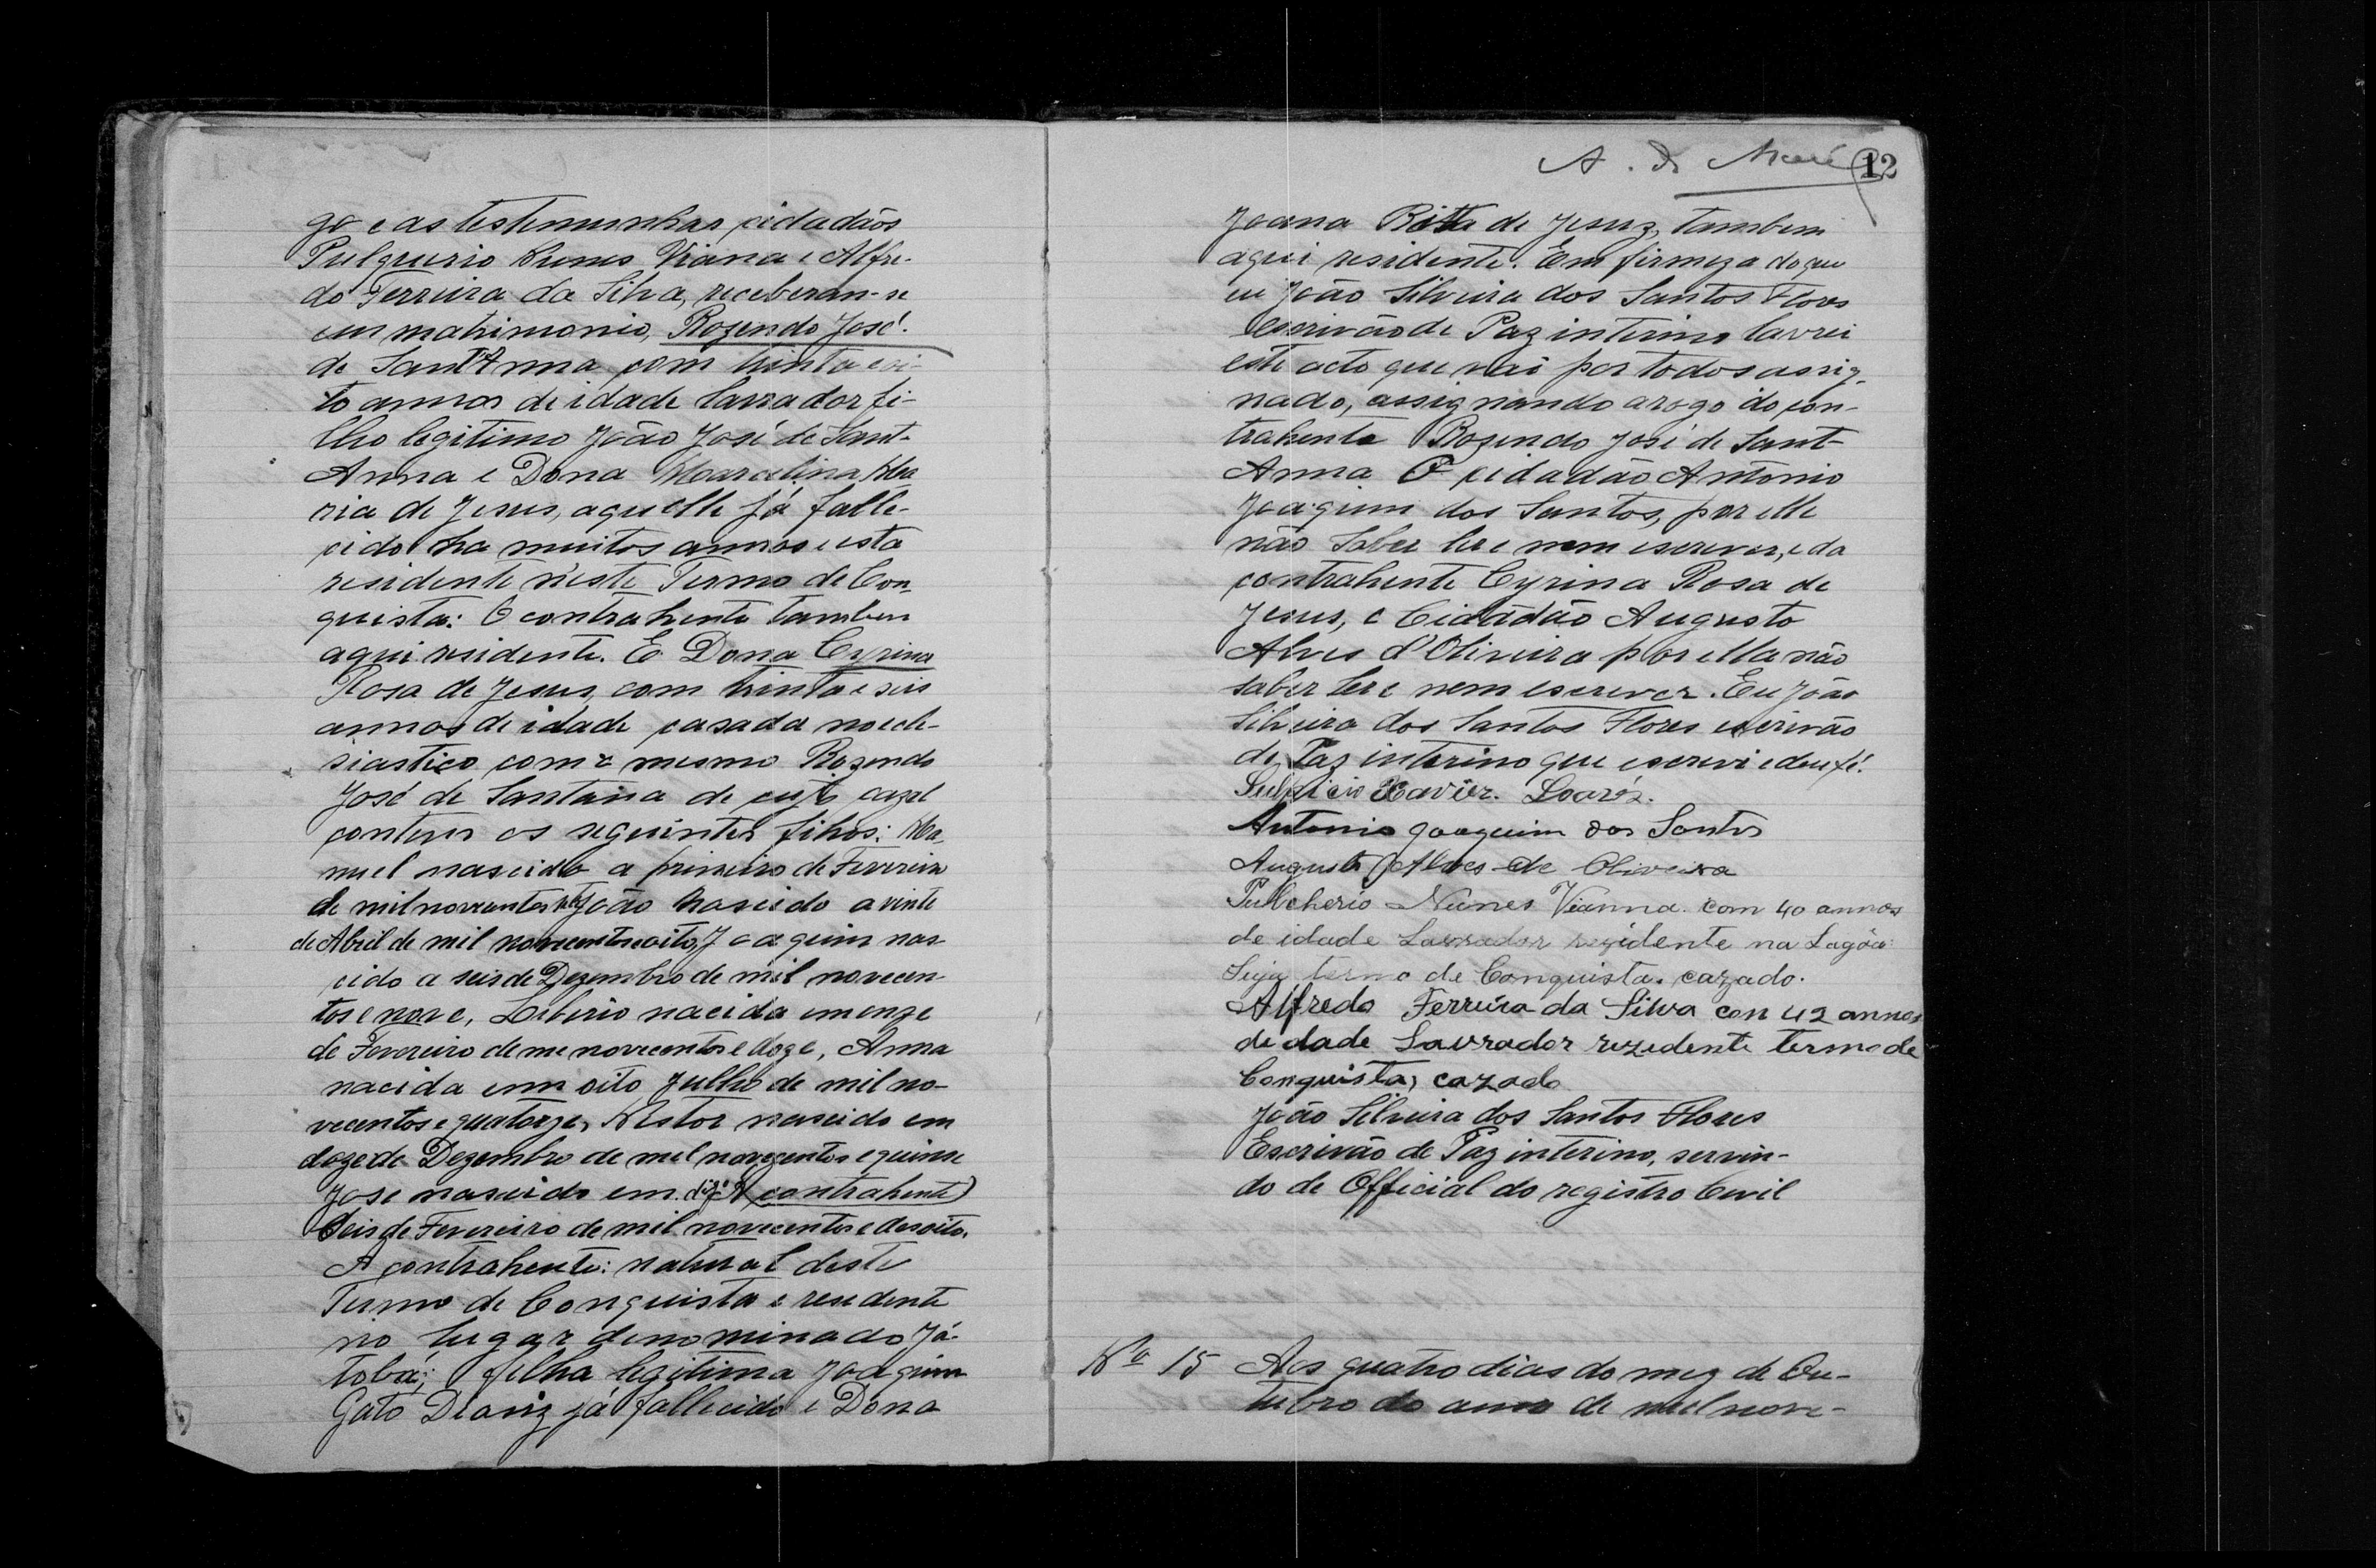 go e as testemunhas cidadãos
Pulquerio Nunes Viana e Alfre-
do Ferreira da Silva, receberam-se
em matrimonio, Rozendo José
de Sant'Anna com trinta e oi-
to annos de idade lavrador fi-
lho legitimo João José de Sant-
Anna e Dona Marcelina Ma
ria de Jesus, aquelle já falle-
cido ha muitos annos e esta
residente n'este Termo de Con-
quista: O contrahente tambem
aqui residente. E Dona Cyrina
Rosa de Jesus, com trinta e seis
annos de idade casada no ecle-
siastico com o mesmo Rozendo
José de Santana de cujo cazal
contem os seguintes filhos: Ma-
nuel nascido a primeiro de Fevereiro
de mil novecentos João nascido a vinte
de Abril de mil novecentos e oito, Joaquim nas
cido a seis de Dezembro de mil novecen-
tos e nove, Liberio nacido em onze
de Fevereiro de me novecentos e doze, Anna
nacida em oito Julho de mil no-
vecentos e quatorze, Nestor nascido em
doze de Dezembro de mel novecentos e quinse
Jose nascido em digo A contrahente)
Seis de Fevereiro de mil novecentos e desoito.
A contrahente: natural deste
Termo de Conquista e residente
no lugar denominado Já-
tobá; filha legitima Joaquim
Gato já fallecido e Dona
A. de 12
Joana Ritta de Jesuz, tambem
aqui residente. Em firmeza do que
eu João Silveira dos Santos Flores
escrivão de Paz interino lavrei
este acto que vai por todos assig-
nado, assignando a rogo do con-
trahente Rozendo José de Sant-
Anna O cidadão Antonio
Joaquim dos Santos, por elle
não saber ler e nem escrever, e da
contrahente Cyrina Rosa de
Jesus, o Cidadão Augusto
Alves d'Oliveira por ella não
saber ler e nem escrever. Eu João
Silveira dos Santos Flores escrivão
de Paz interino que escrevi e dou fé.
Sulpicio Xavier.
Antonio Joaquim dos Santos
Augusto Alves de Oliveira
Pulcherio Nunes Vianna. com 40 annos
de idade Lavrador rezidente na Lagôa
Suja termo de Conquista. cazado.
Alfredo Ferreira da Silva con 42 annos
de dade Lavrador rezedente termo de
Conquista, cazado
João Silveira dos Santos Flores
Escrivão de Paz interino, servin-
do de Official do registro Civil
Nº 15 Aos quatro dias do mez de Ou-
tubro do anno de mil nove-